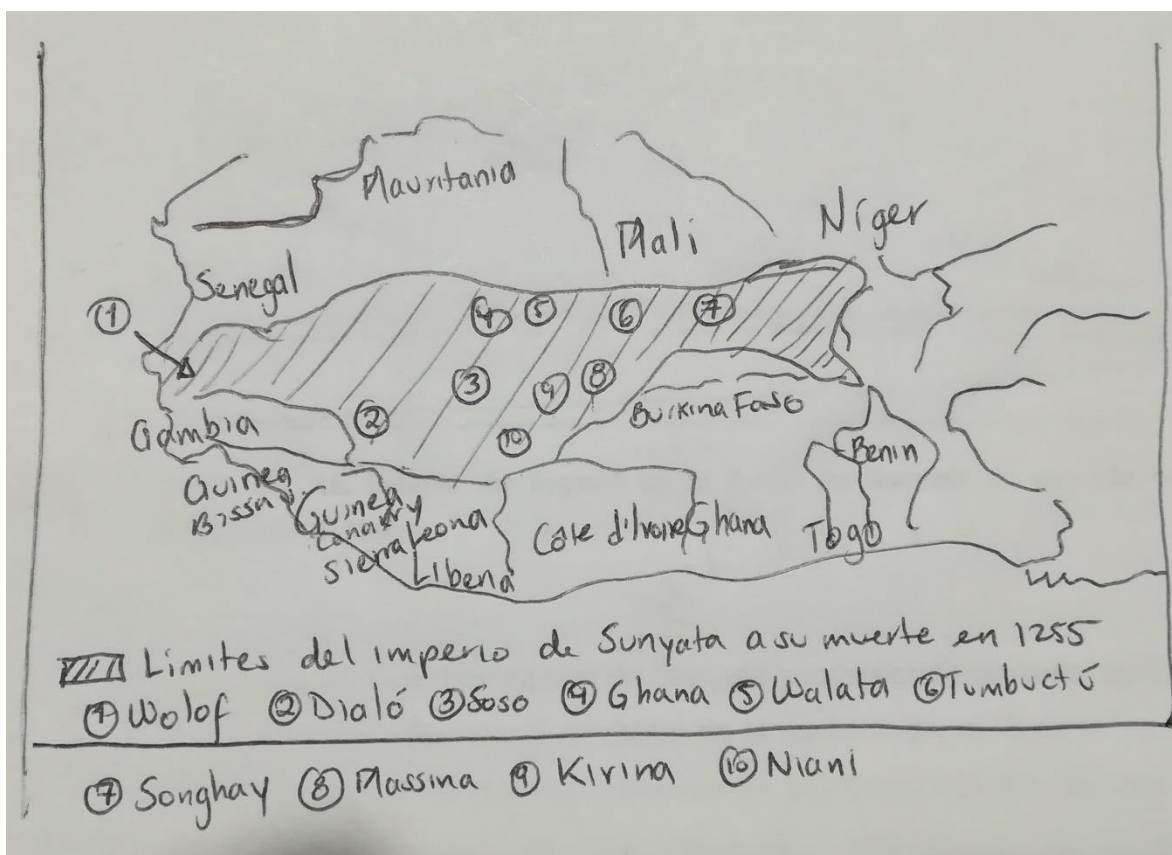 Mauritania
Mali
Níger
Senegal
① ④ ⑤ ⑥ ⑦
③ ⑨ ⑧
② ⑩
Burkina Faso
Gambia
Benin
Guinea
Bissau
Guinea
Conakry
Sierra Leona
Liberia
Côte d'Ivoire Ghana
Togo
Límites del imperio de Sunyata a su muerte en 1255
① Wolof ② Dialó ③ Soso ④ Ghana ⑤ Walata ⑥ Tumbuctú
⑦ Songhay ⑧ Massina ⑨ Kirina ⑩ Niani